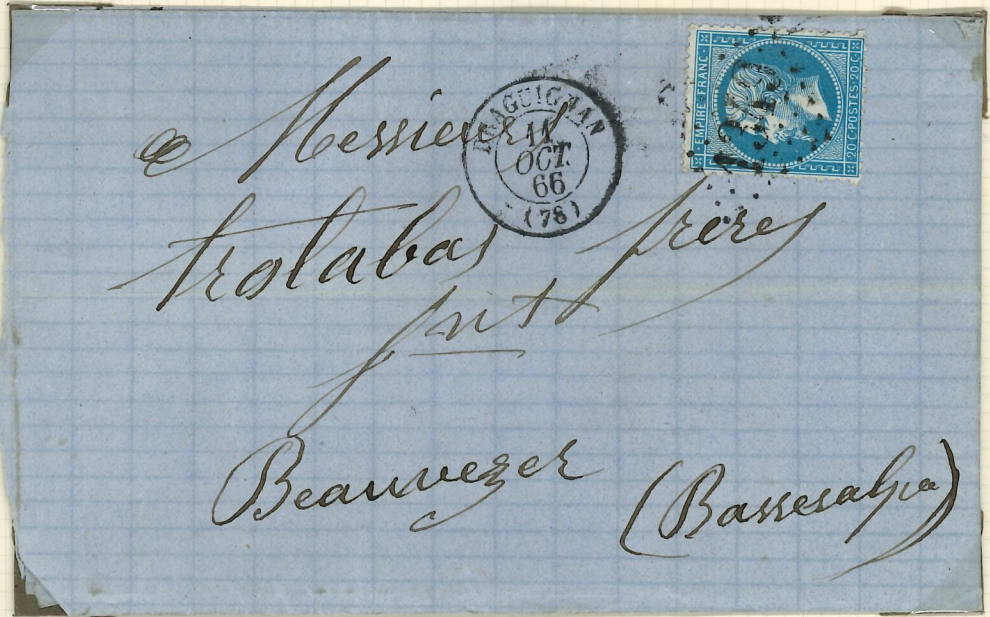 EMPIRE FRANC
20 C POSTES 20 C
DRAGUIGNAN
11
OCT.
66
(78)
Messieurs
trolabas frères
Beauvezer (Bassesalpes)